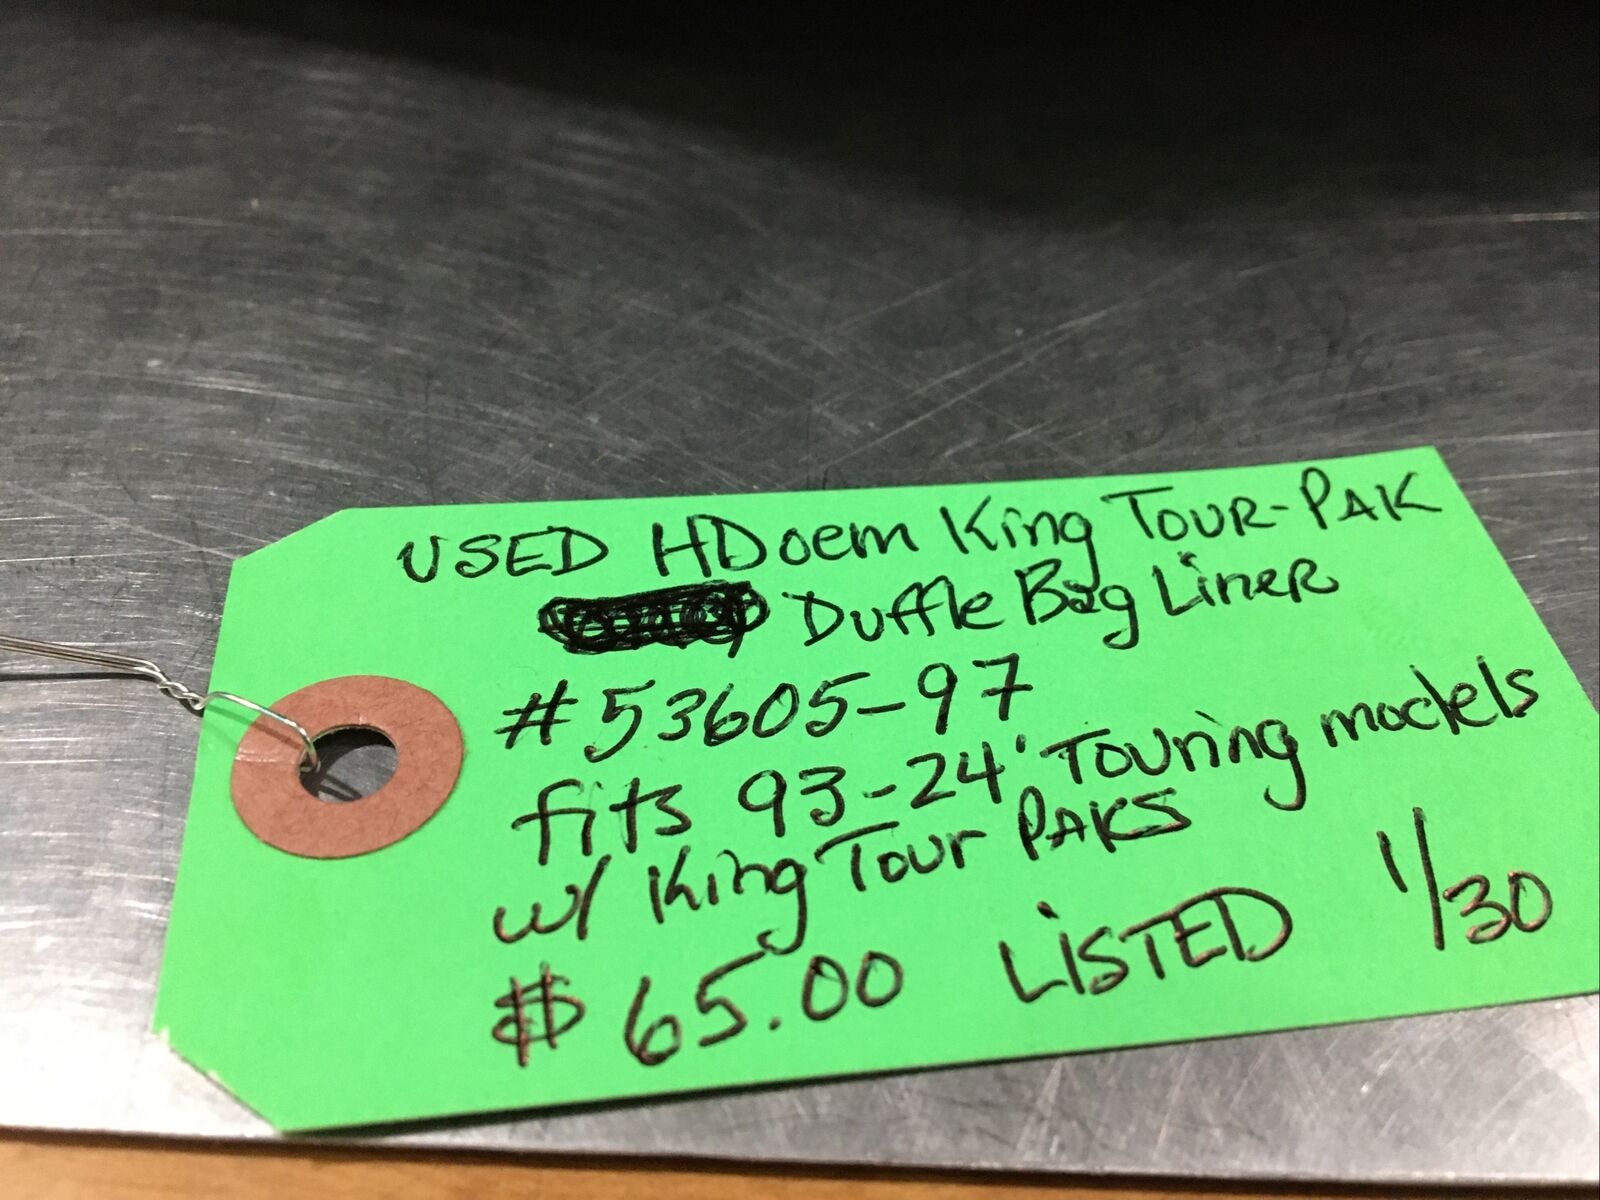 USED HD oem King TOUR-PAK
Duffle Bag Liner
#53605-97
fits 93-24' Touring models
w/ King Tour PAKS
$65.00 LiSTED 1/30